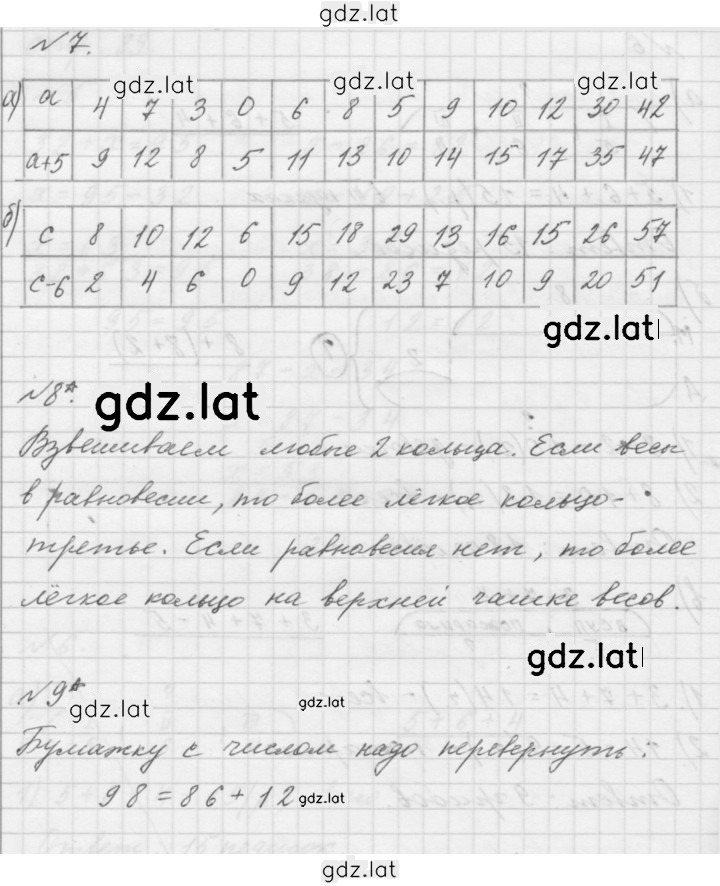 gdz.lat
№7.
gdz.lat gdz.lat gdz.lat
а) а 4 7 3 0 6 8 5 9 10 12 30 42
а+5 9 12 8 5 11 13 10 14 15 17 35 47
б) с 8 10 12 6 15 18 29 13 16 15 26 57
с-6 2 4 6 0 9 12 23 7 10 9 20 51
gdz.lat
№8*. gdz.lat
Взвешиваем любые 2 кольца. Если весы
в равновесии, то более лёгкое кольцо-
третье. Если равновесия нет, то более
лёгкое кольцо на верхней чашке весов.
gdz.lat
№9*
gdz.lat gdz.lat
Бумажку с числом надо перевернуть:
98=86+12 gdz.lat
gdz.lat